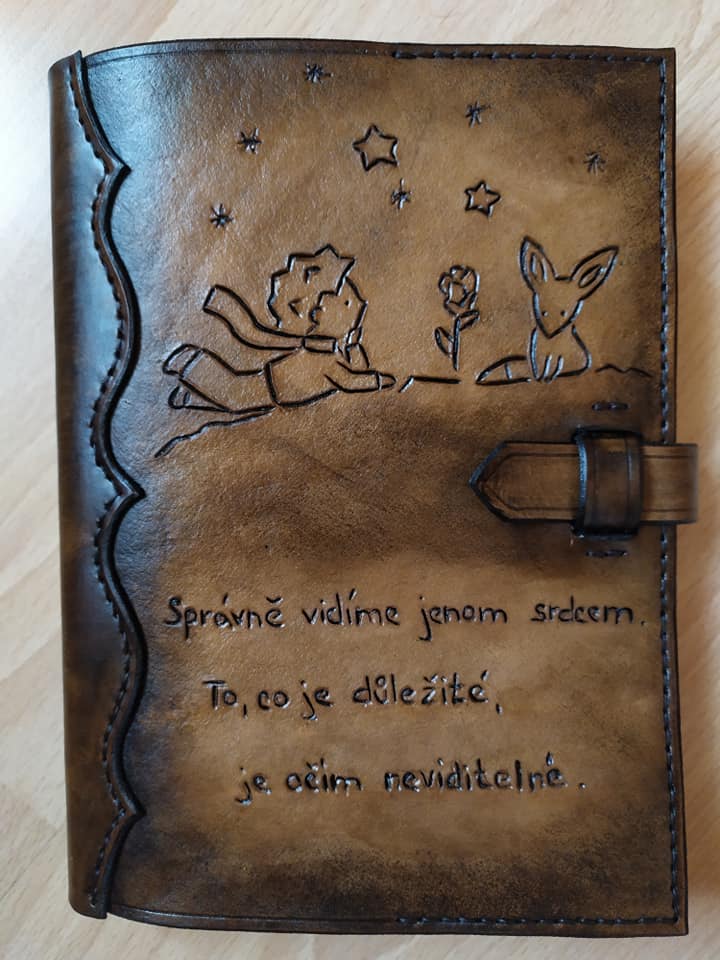 Správně vidíme jenom srdcem.
To, co je důležité,
je očím neviditelné.